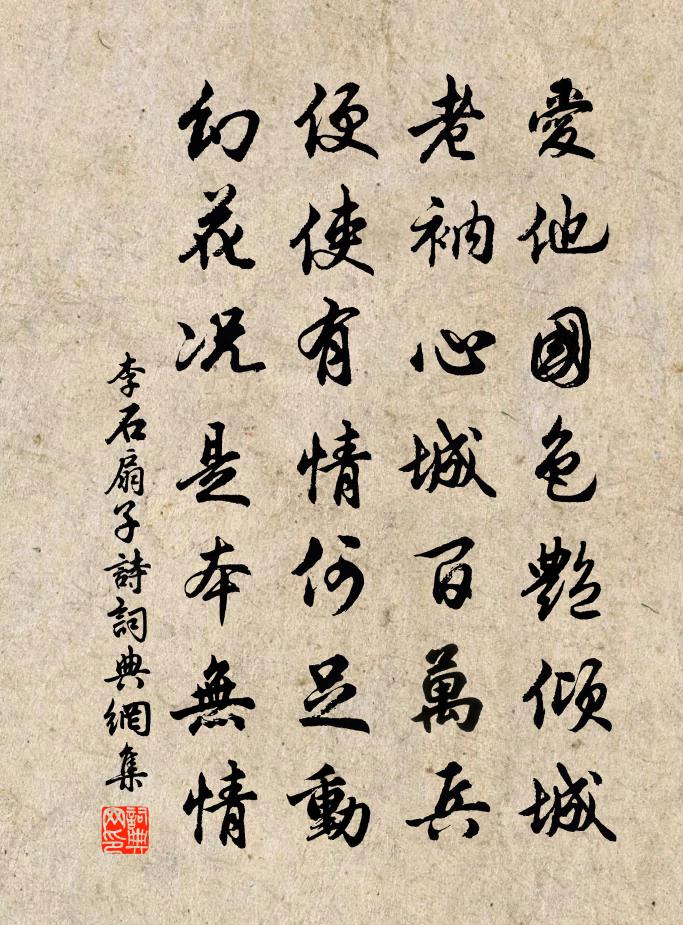 愛他國色艷傾城
老衲心城百萬兵
便使有情何足動
幻花況是本無情
李石扇子詩詞典網集
詞典網印